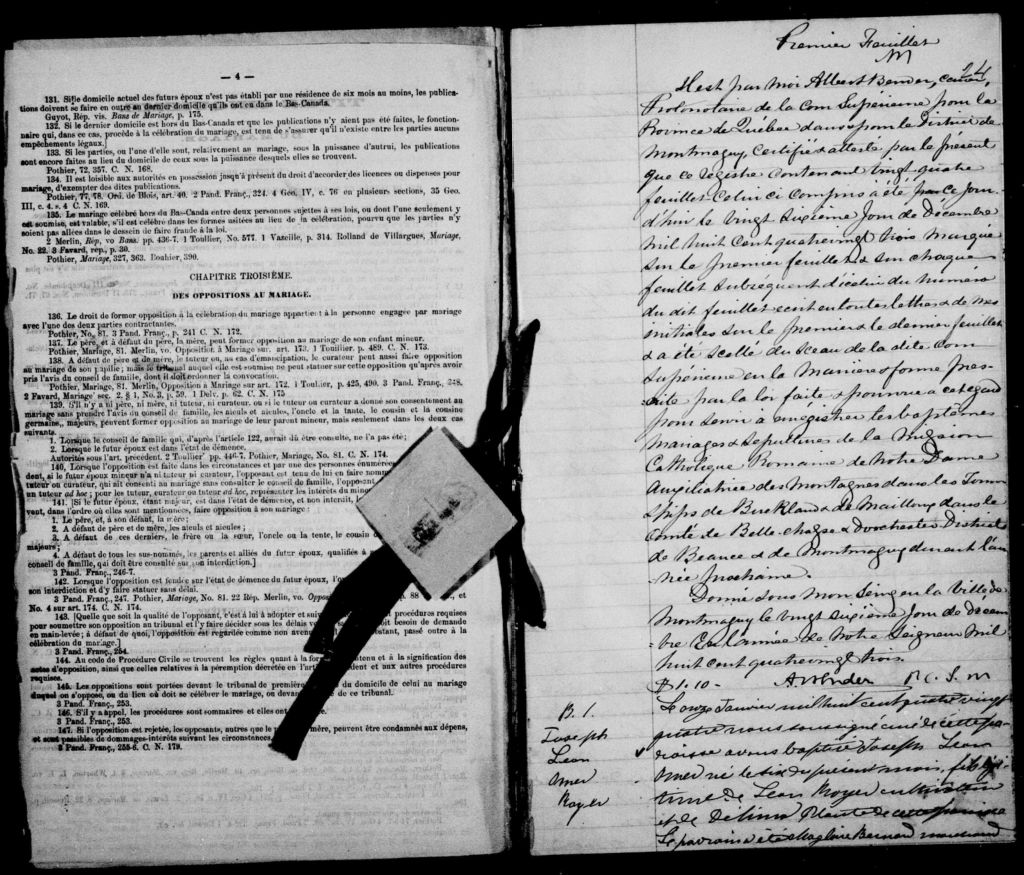 — 4 —
131. Si le domicile actuel des futurs époux n'est pas établi par une résidence de six mois au moins, les publica-
tions doivent se faire en outre au dernier domicile qu'ils ont eu dans le Bas-Canada.
Guyot, Rép. vis. Bans de Mariage, p. 175.
132. Si le dernier domicile est hors du Bas-Canada et que les publications n'y aient pas été faites, le fonction-
naire qui, dans ce cas, procède à la célébration du mariage, est tenu de s'assurer qu'il n'existe entre les parties aucuns
empêchements légaux.]
133. Si les parties, ou l'une d'elle sont, relativement au mariage, sous la puissance d'autrui, les publications
sont encore faites au lieu du domicile de ceux sous la puissance desquels elles se trouvent.
Pothier, 72, 357. C. N. 168.
134. Il est loisible aux autorités en possession jusqu'à présent du droit d'accorder des licences ou dispenses pour
mariage, d'exempter des dites publications.
Pothier, 77, 78. Ord. de Blois, art. 40. 2 Pand. Franç., 324. 4 Geo. IV, c. 76 en plusieurs sections, 35 Geo.
III, c. 4. s. 4 C. N. 169.
135. Le mariage célébré hors du Bas-Canda entre deux personnes sujettes à ses lois, ou dont l'une seulement y
est soumise, est valable, s'il est célébré dans les formes usitées au lieu de la célébration, pourvu que les parties n'y
soient pas allées dans le dessein de faire fraude à la loi.
2 Merlin, Rép, vo Bans. pp. 436-7. 1 Toullier, No. 577. 1 Vazeille, p. 314. Rolland de Villargues, Mariage,
No. 22. 3 Favard, rép., p. 30.
Pothier, Mariage, 327, 363. Bouhier, 390.
CHAPITRE TROISIÈME.
DES OPPOSITIONS AU MARIAGE.
136. Le droit de former opposition à la célébration du mariage appartient à la personne engagée par mariage
avec l'une des deux parties contractantes.
Pothier, No. 81. 3 Pand. Franç., p. 241 C. N. 172.
137. Le père, et à défaut du père, la mère, peut former opposition au mariage de son enfant mineur.
Pothier, Mariage, 81. Merlin, vo. Opposition à Mariage sur art. 173. 1 Touillier, p. 489. C. N. 173.
138. A défaut de père et de mère, le tuteur ou, au cas d'émancipation, le curateur peut aussi faire opposition
au mariage de son pupille; mais le tribunal auquel elle est soumise ne peut statuer sur cette opposition qu'après avoir
pris l'avis du conseil de famille, dont il doit ordonner la convocation.
Pothier, Mariage, 81. Merlin, Opposition à Mariage sur art. 172. 1 Toulier, p. 425, 490. 3 Pand. Franç., 248.
2 Favard, Mariage, sec. 2. § 1, No. 3, p. 59. 1 Delv. p. 62. C. N. 175
139. S'il n'y a ni père, ni mère, ni tuteur, ni curateur, ou si le tuteur ou curateur a donné son consentement au
mariage sans prendre l'avis du conseil de famille, les aïeuls et aïeules, l'oncle et la tante, le cousin et la cousine
germains, majeurs, peuvent former opposition au mariage de leur parent mineur, mais seulement dans les deux cas
suivants.
1. Lorsque le conseil de famille qui, d'après l'article 122, aurait dû être consulté, ne l'a pas été;
2. Lorsque le futur époux est dans l'état de démence.
Autorités sous l'art. précédent. 2 Toullier pp. 446-7. Pothier, Mariage, No. 81. C. N. 174.
140. Lorsque l'opposition est faite dans les circonstances et par une des personnes énumérées
dent, si le futur époux mineur n'a ni tuteur ni curateur, l'opposant est tenu de lui en faire nomm
tuteur ou curateur, qui ait consenti au mariage sans consulter le conseil de famille, l'opposant
un tuteur ad hoc; pour les tuteur, curateur ou tuteur ad hoc, représenter les intérêts du mine
141. [Si le futur époux, étant majeur, est dans l'état de démence, et non interdit,
vant, dans l'ordre où elles sont mentionnées, faire opposition à son mariage:
1. Le père, et, à son défaut, la mère;
2. A défaut de père et de mère, les aïeuls et aïeules;
3. A défaut de ces derniers, le frère ou la sœur, l'oncle ou la tente, le cousin
majeurs;
4. A défaut de tous les sus-nommés, les parents et alliés du futur époux, qualifiés à
conseil de famille, qui doit être consulté sur son interdiction.]
3 Pand. Franç., 246-7.
142. Lorsque l'opposition est fondée sur l'état de démence du futur époux, l'o
son interdiction et d'y faire statuer sans délai.
3 Pand. Franç., 247. Pothier, Mariage, No. 81. 22 Rép. Merlin, vo. Oppos p. 88 et
No. 4 sur art. 174. C. N. 174.
143. [Quelle que soit la qualité de l'opposant, c'est à lui à adopter et suivre procédures requises
pour soumettre son opposition au tribunal et l'y faire décider sous les délais soit besoin de demande
en main-levée; à défaut de quoi, l'opposition est regardée comme non aven stant, passé outre à la
célébration du mariage.]
3 Pand. Franç., 254.
144. Au code de Procédure Civile se trouvent les règles quant à la for tenu et à la signification
des actes d'opposition, ainsi que celles relatives à la péremption décrétée en l'art dent et aux autres procédures
requises.
145. Les oppositions sont portées devant le tribunal de première du domicile de celui au mariage
duquel on s'oppose, ou du lieu où doit se célébrer le mariage, ou devan de ce tribunal.
3 Pand. Franç., 253.
146. S'il y a appel, les procédures sont sommaires et elles ont
3 Pand. Franç., 253.
147. Si l'opposition est rejetée, les opposants, autres que le mère, peuvent être condamnés aux dépens,
et sont passibles de dommages-intérêts suivant les circonstances.
3 Pand. Franç., 255-6. C. N. 179.
Premier Feuillet
24
Il est par moi Albert Bender,
Protonotaire de la Cour Supérieure pour la
Province de Québec dans & pour le District de
Montmagny, Certifié & attesté par le présent
que ce registre contenant vingt quatre
feuillets celui ci compris a été par ce jour-
d'hui le vingt sixième jour de Décembre
mil huit cent quatrevingt trois marqué
sur le premier feuillet & sur chaque
feuillet subséquent d'icelui du numéro
du dit feuillet écrit en toutes lettres & de mes
initiales sur le premier & le dernier feuillet
& a été scellé du Sceau de la dite Cour
Supérieure en la manière & forme pres-
crite par la loi faite & pourvue a cet égard
pour servir à enregistrer les baptêmes
Mariages & Sépultures de la Mission
Catholique Romaine de Notre Dame
Auxiliatrice des Montagnes dans les Town
ships de Buckland & de Mailloux dans le
Comté de Bellechasse & Dorchester District
de Beauce & de Montmagny durant l'an-
née prochaine.
Donné sous mon Seing en la Ville de
Montmagny le vingt sixième Jour de Décem
bre en l'année de Notre Seigneur Mil
huit cent quatrevingt trois.
$1.10- A Bender P. C. S. M
B. 1.
Joseph
Léon
Omer
Royer
Le onze Janvier mil huit cent quatre vingt
quatre nous soussigné curé de cette pa-
roisse avons baptisé Joseph Léon
Omer né le six du présent mois, fils légi-
time de Léon Royer cultivateur
et de Délima Plante de cette paroisse
Le parrain a été Magloire Bernard marchand